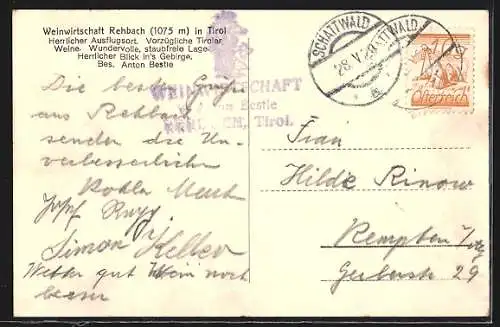 Weinwirtschaft Rehbach (1075 m) in Tirol
Herrlicher Ausflugsort. Vorzügliche Tiroler
Weine. Wundervolle, staubfreie Lage.
Herrlicher Blick in's Gebirge.
Bes. Anton Bestle
WEINWIRTSCHAFT
Bestle
Tirol.
Die besten Grüße
aus Rehbach
senden die Un-
verbesserlichen
Josef
Simon Keller
Wetter gut Wein noch
besser
SCHATTWALD
28. V.
SCHATTWALD
a
Österreich
Frau
Hilde Rinow
Kempten
Gerberstr 29